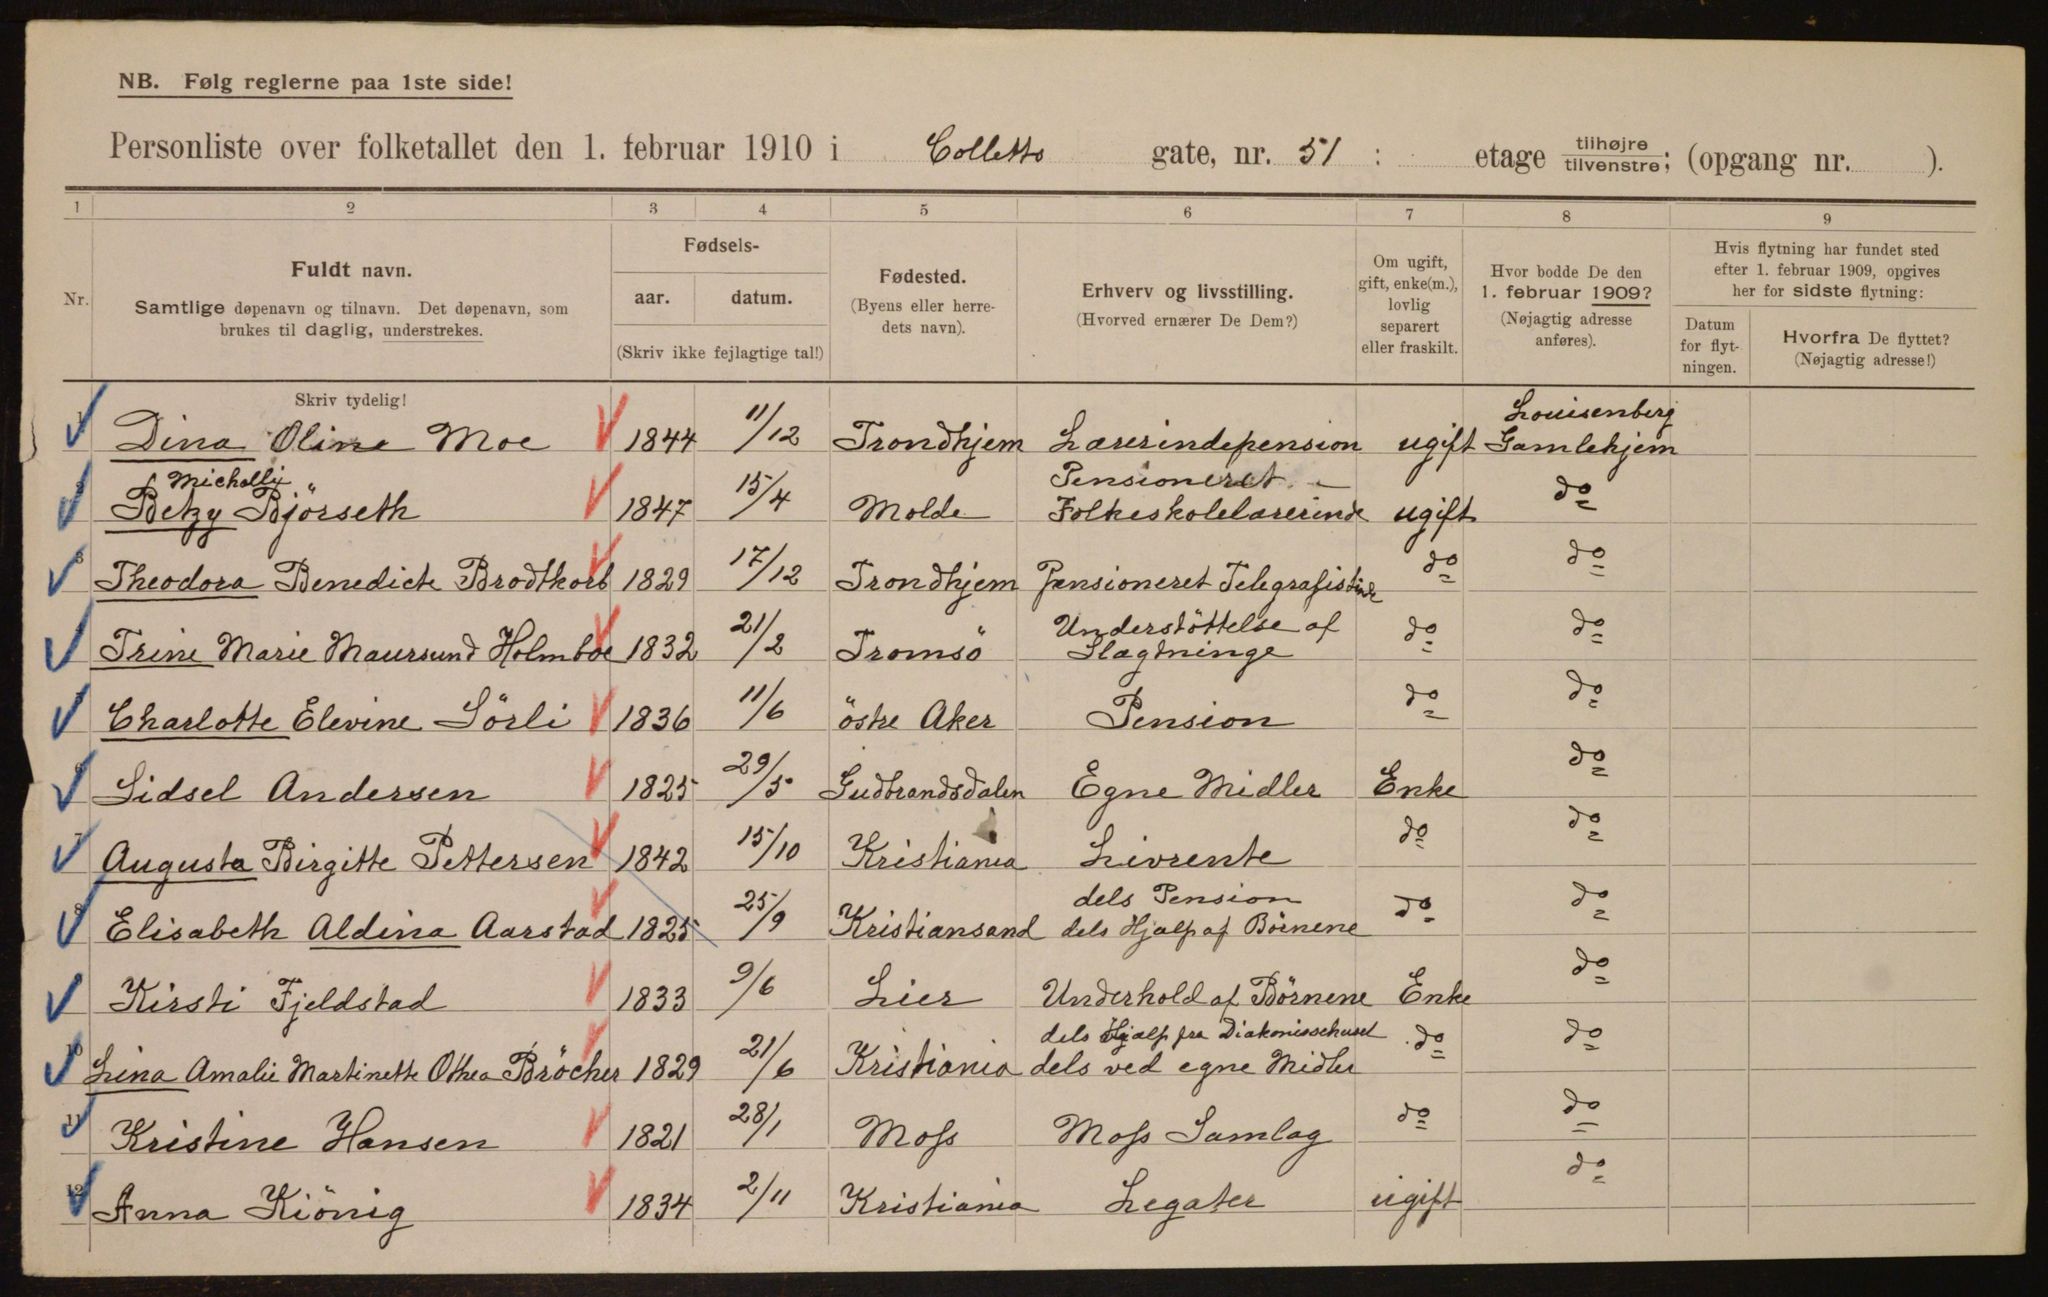 NB. Følg reglerne paa 1ste side!
Personliste over folketallet den 1. februar 1910 i Colletts gate, nr. 51 : etage tilhøjre tilvenstre; (opgang nr. ).
1 2 3 4 5 6 7 8 9
Nr.
Fuldt navn.
Samtlige døpenavn og tilnavn. Det døpenavn, som
brukes til daglig, understrekes.
Fødsels-
aar. datum.
(Skriv ikke fejlagtige tal!)
Fødested.
(Byens eller herre-
dets navn).
Erhverv og livsstilling.
(Hvorved ernærer De Dem?)
Om ugift,
gift, enke(m.),
lovlig
separert
eller fraskilt.
Hvor bodde De den
1. februar 1909?
(Nøjagtig adresse
anføres).
Hvis flytning har fundet sted
efter 1. februar 1909, opgives
her for sidste flytning:
Datum
for flyt-
ningen.
Hvorfra De flyttet?
(Nøjagtig adresse!)
Skriv tydelig!
1 Dina Oline Moe 1844 11/12 Trondhjem Lærerindepension ugift Louisenberg
Gamlehjem
2 Michelly
Betzy Bjørseth 1847 15/4 Molde Pensioneret
Folkeskolelærerinde ugift do
3 Theodora Benedicte Brodtkorb 1829 17/12 Trondhjem Pensioneret Telegrafistinde do do
4 Trine Marie Maursund Holmboe 1832 21/2 Tromsö Understöttelse af
Slægtninge do do
5 Charlotte Elevine Sörli 1836 11/6 östre Aker Pension do do
6 Sidsel Andersen 1825 29/5 Gudbrandsdalen Egne Midler Enke do
7 Augusta Birgitte Pettersen 1842 15/10 Kristiania Livrente do do
8 Elisabeth Aldina Aarstad 1825 25/9 Kristiansand dels Pension
dels Hjælp af Börnene do do
9 Kirsti Fjeldstad 1833 9/6 Lier Underhold af Börnene Enke do
10 Lina Amalie Martinette Othea Bröcher 1829 21/6 Kristiania dels Hjælp fra Diakonissehuset
dels ved egne Midler do do
11 Kristine Hansen 1821 28/1 Moss Moss Samlag do do
12 Anna Kiönig 1834 2/11 Kristiania Legater ugift do